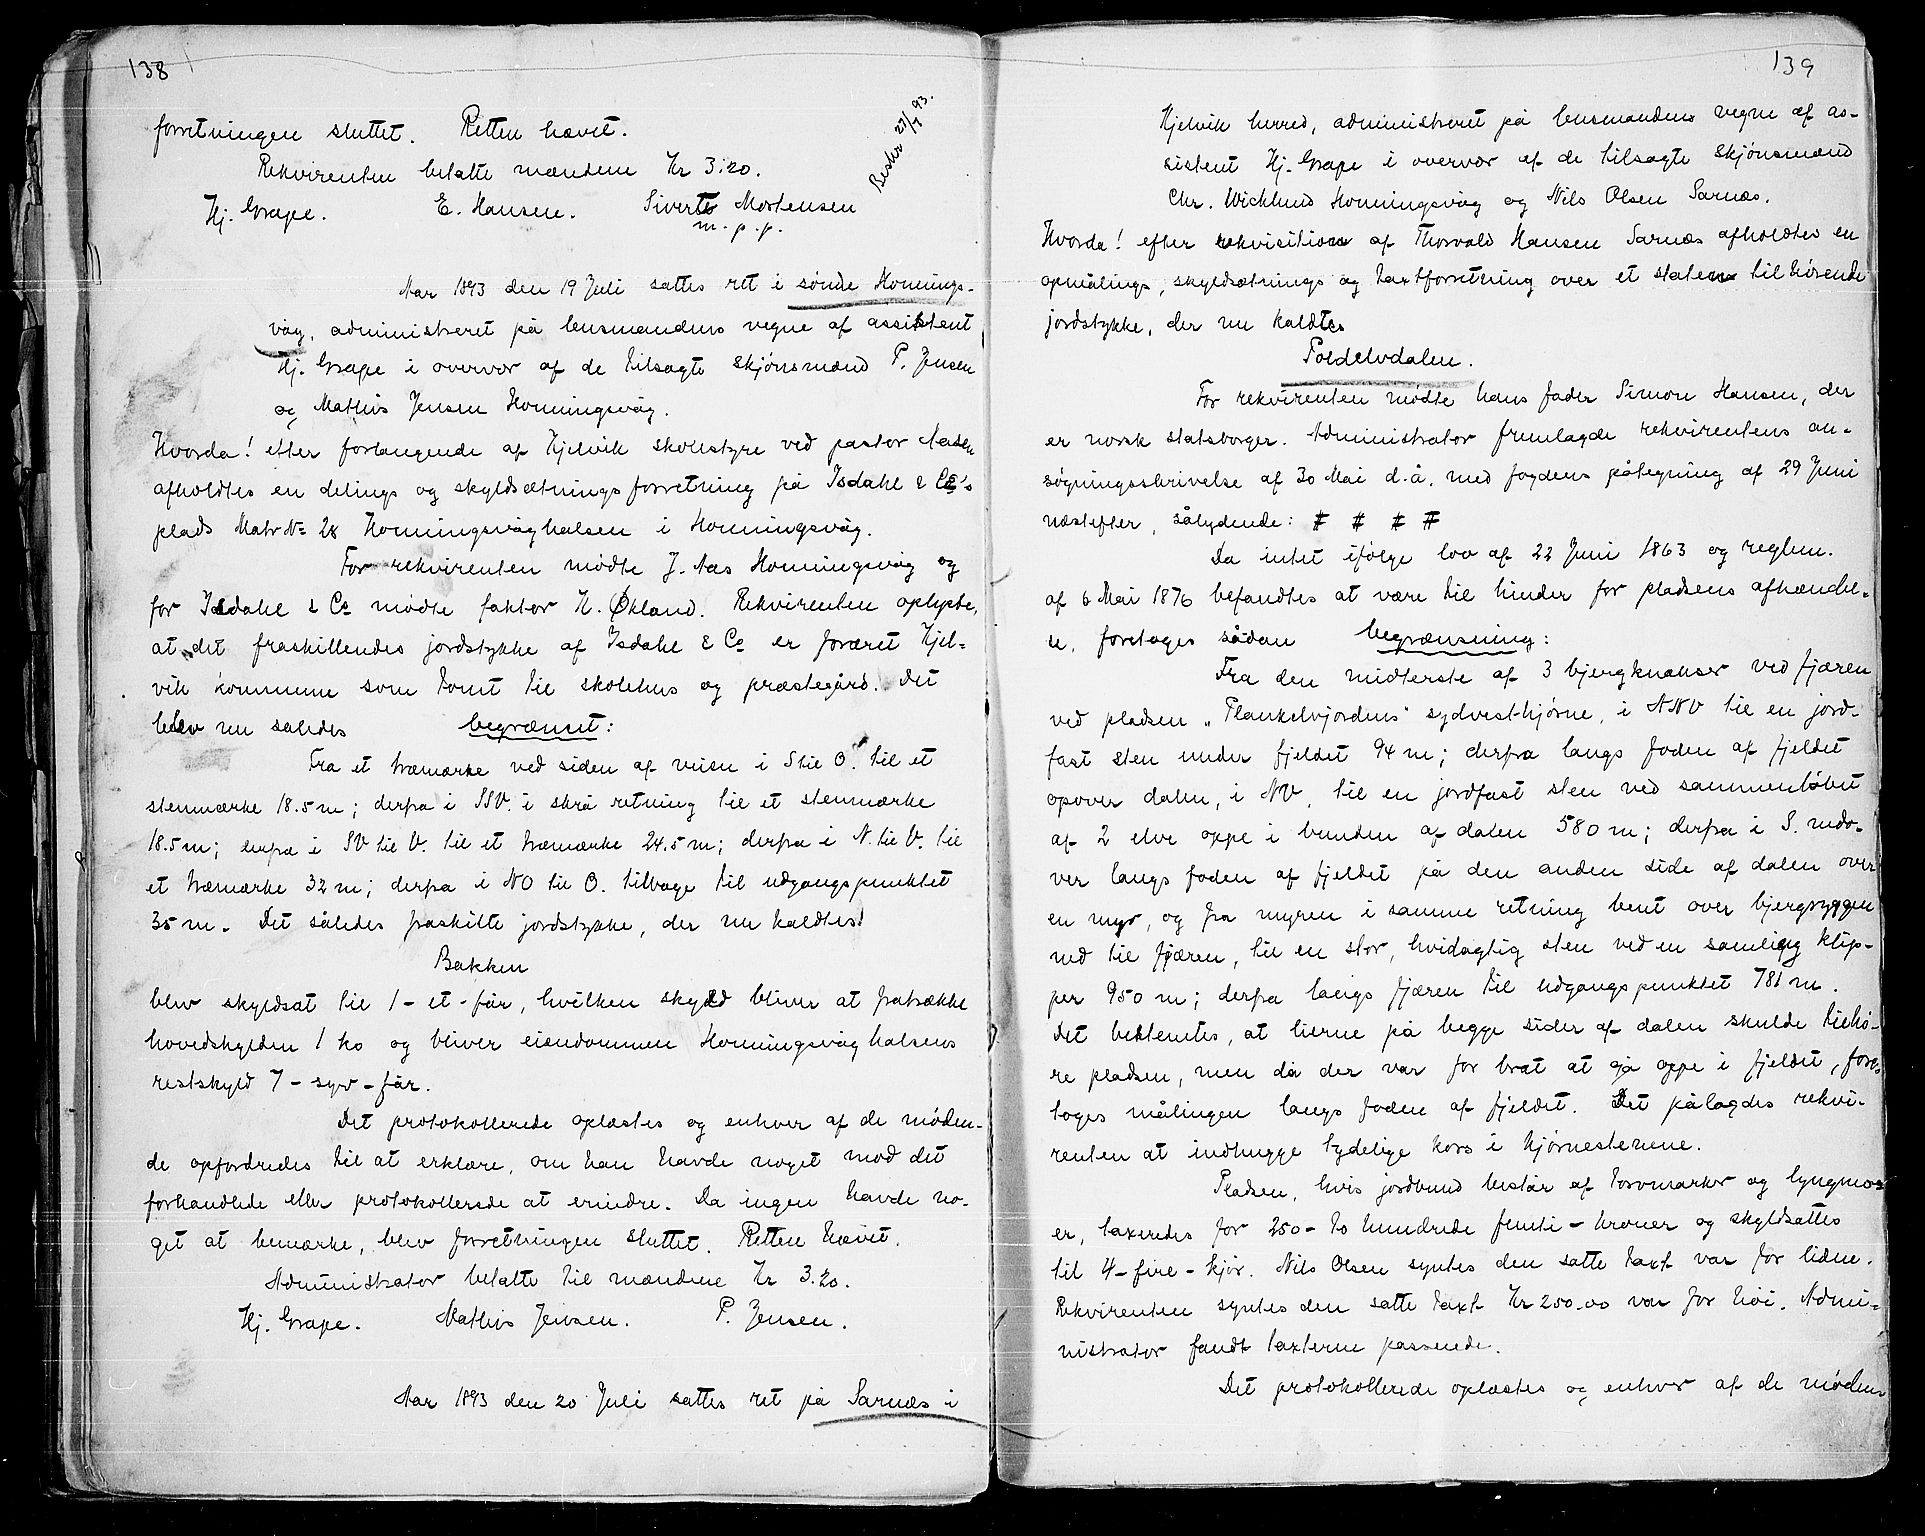 138
forretningen sluttet. Retten hævet.
Rekvirenten betalte mændene Kr 3.20.
Beskr 27/7 93.
Hj. Grape. E. Hansen. Siverts Mortensen
m. p. p.
Aar 1893 den 19 Juli sattes ret i søndre Honnings-
våg, administreret på lensmandens vegne af assistent
Hj. Grape i overvær af de tilsagte skjønsmænd P. Jensen
og Mathis Jensen Honningsvåg.
Hvorda! efter forlangende af Kjelvik skolestyre ved pastor
afholdtes en delings og skyldsætningsforretning på Isdahl & Co's
plads Matr № 28 Honningsvåghalsen i Honningsvåg.
For rekvirenten mødte J. Aas Honningsvåg og
for Isdahl & Co mødte faktor H. Økland. Rekvirenten oplyste,
at det fraskillendes jordstykke af Isdahl & Co er foræret Kjel-
vik kommune som tomt til skolehus og præstegård. Det
blev nu således begrænset:
Fra et træmærke ved siden af veien i S til O. til et
stenmærke 18.5 m; derfra i SSV. i skrå retning til et stenmærke
18.5 m; derfra i SV til V. til et træmærke 24.5 m; derfra i N. til V. til
et træmærke 32 m; derfra i NO til O. tilbage til udgangspunktet
35 m. Det således fraskilte jordstykke, der nu kaldtes!
Bakken
blev skyldsat til 1 - et - får, hvilken skyld bliver at fratrække
hovedskylden 1 ko og bliver eiendommen Honningsvåghalsens
restskyld 7 - syv - får.
Det protokollerede oplæstes og enhver af de møden-
de opfordredes til at erklære, om han havde noget mod det
forhandlede eller protokollerede at erindre. Da ingen havde no-
get at bemærke, blev forretningen sluttet. Retten hævet.
Administrator betalte til mændene Kr 3.20.
Hj. Grape. Mathis Jensen. P. Jensen.
Aar 1893 den 20 Juli sattes ret på Sarnæs i
139
Kjelvik herred, administreret på lensmandens vegne af as-
sistent Hj. Grape i overvær af de tilsagte skjønsmænd
Chr. Wicklund Honningsvåg og Nils Olsen Sarnæs.
Hvorda! efter rekvisition af Thorvald Hansen Sarnæs afholdtes en
opmålings, skyldsætnings og taxtforretning over et staten tilhørende
jordstykke, der nu kaldtes
Poldelvdalen.
For rekvirenten mødte hans fader Simon Hansen, der
er norsk statsborger. Administrator fremlagde rekvirentens an-
søgningsskrivelse af 30 Mai d.å. med fogdens påtegning af 29 Juni
næstefter, sålydende: # # # #
Da intet ifølge lov af 22 Juni 1863 og reglem.
af 6 Mai 1876 befandtes at være til hinder for pladsens afhændel-
se, foretoges sådan begrænsning:
Fra den midterste af 3 bjergknauser ved fjæren
ved pladsen "Plankelvjordens" sydvesthjørne, i NNV til en jord-
fast sten under fjeldet 94 m; derfra langs foden af fjeldet
opover dalen, i NV, til en jordfast sten ved sammenløbet
af 2 elve oppe i bunden af dalen 580 m; derfra i S. nedo-
ver langs foden af fjeldet på den anden side af dalen over
en myr, og fra myren i samme retning bent over bjergryggen
ned til fjæren, til en stor, hvidagtig sten ved en samling klip-
per 950 m; derfra langs fjæren til udgangspunktet 781 m.
Det bestemtes, at lierne på begge sider af dalen skulde tilhø-
re pladsen, men da der var for brat at gå oppe i fjeldet, fore-
toges målingen langs foden af fjeldet. Det pålagdes rekvi-
renten at indhugge tydelige kors i hjørnestenene.
Pladsen, hvis jordbund består af torvmarker og lyngmo-
er, taxeredes for 250 - to hundrede femti - kroner og skyldsattes
til 4 - fire - kjør. Nils Olsen syntes den satte taxt var for liden.
Rekvirenten syntes den satte taxt Kr 250.00 var for høi. Admi-
nistrator fandt taxterne passende.
Det protokollerede oplæstes og enhver af de møden-